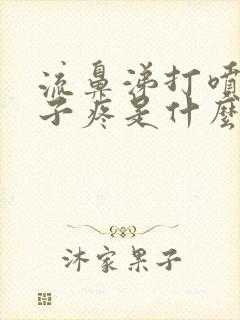 流鼻涕打噴
子疼是什麼
沐家果子